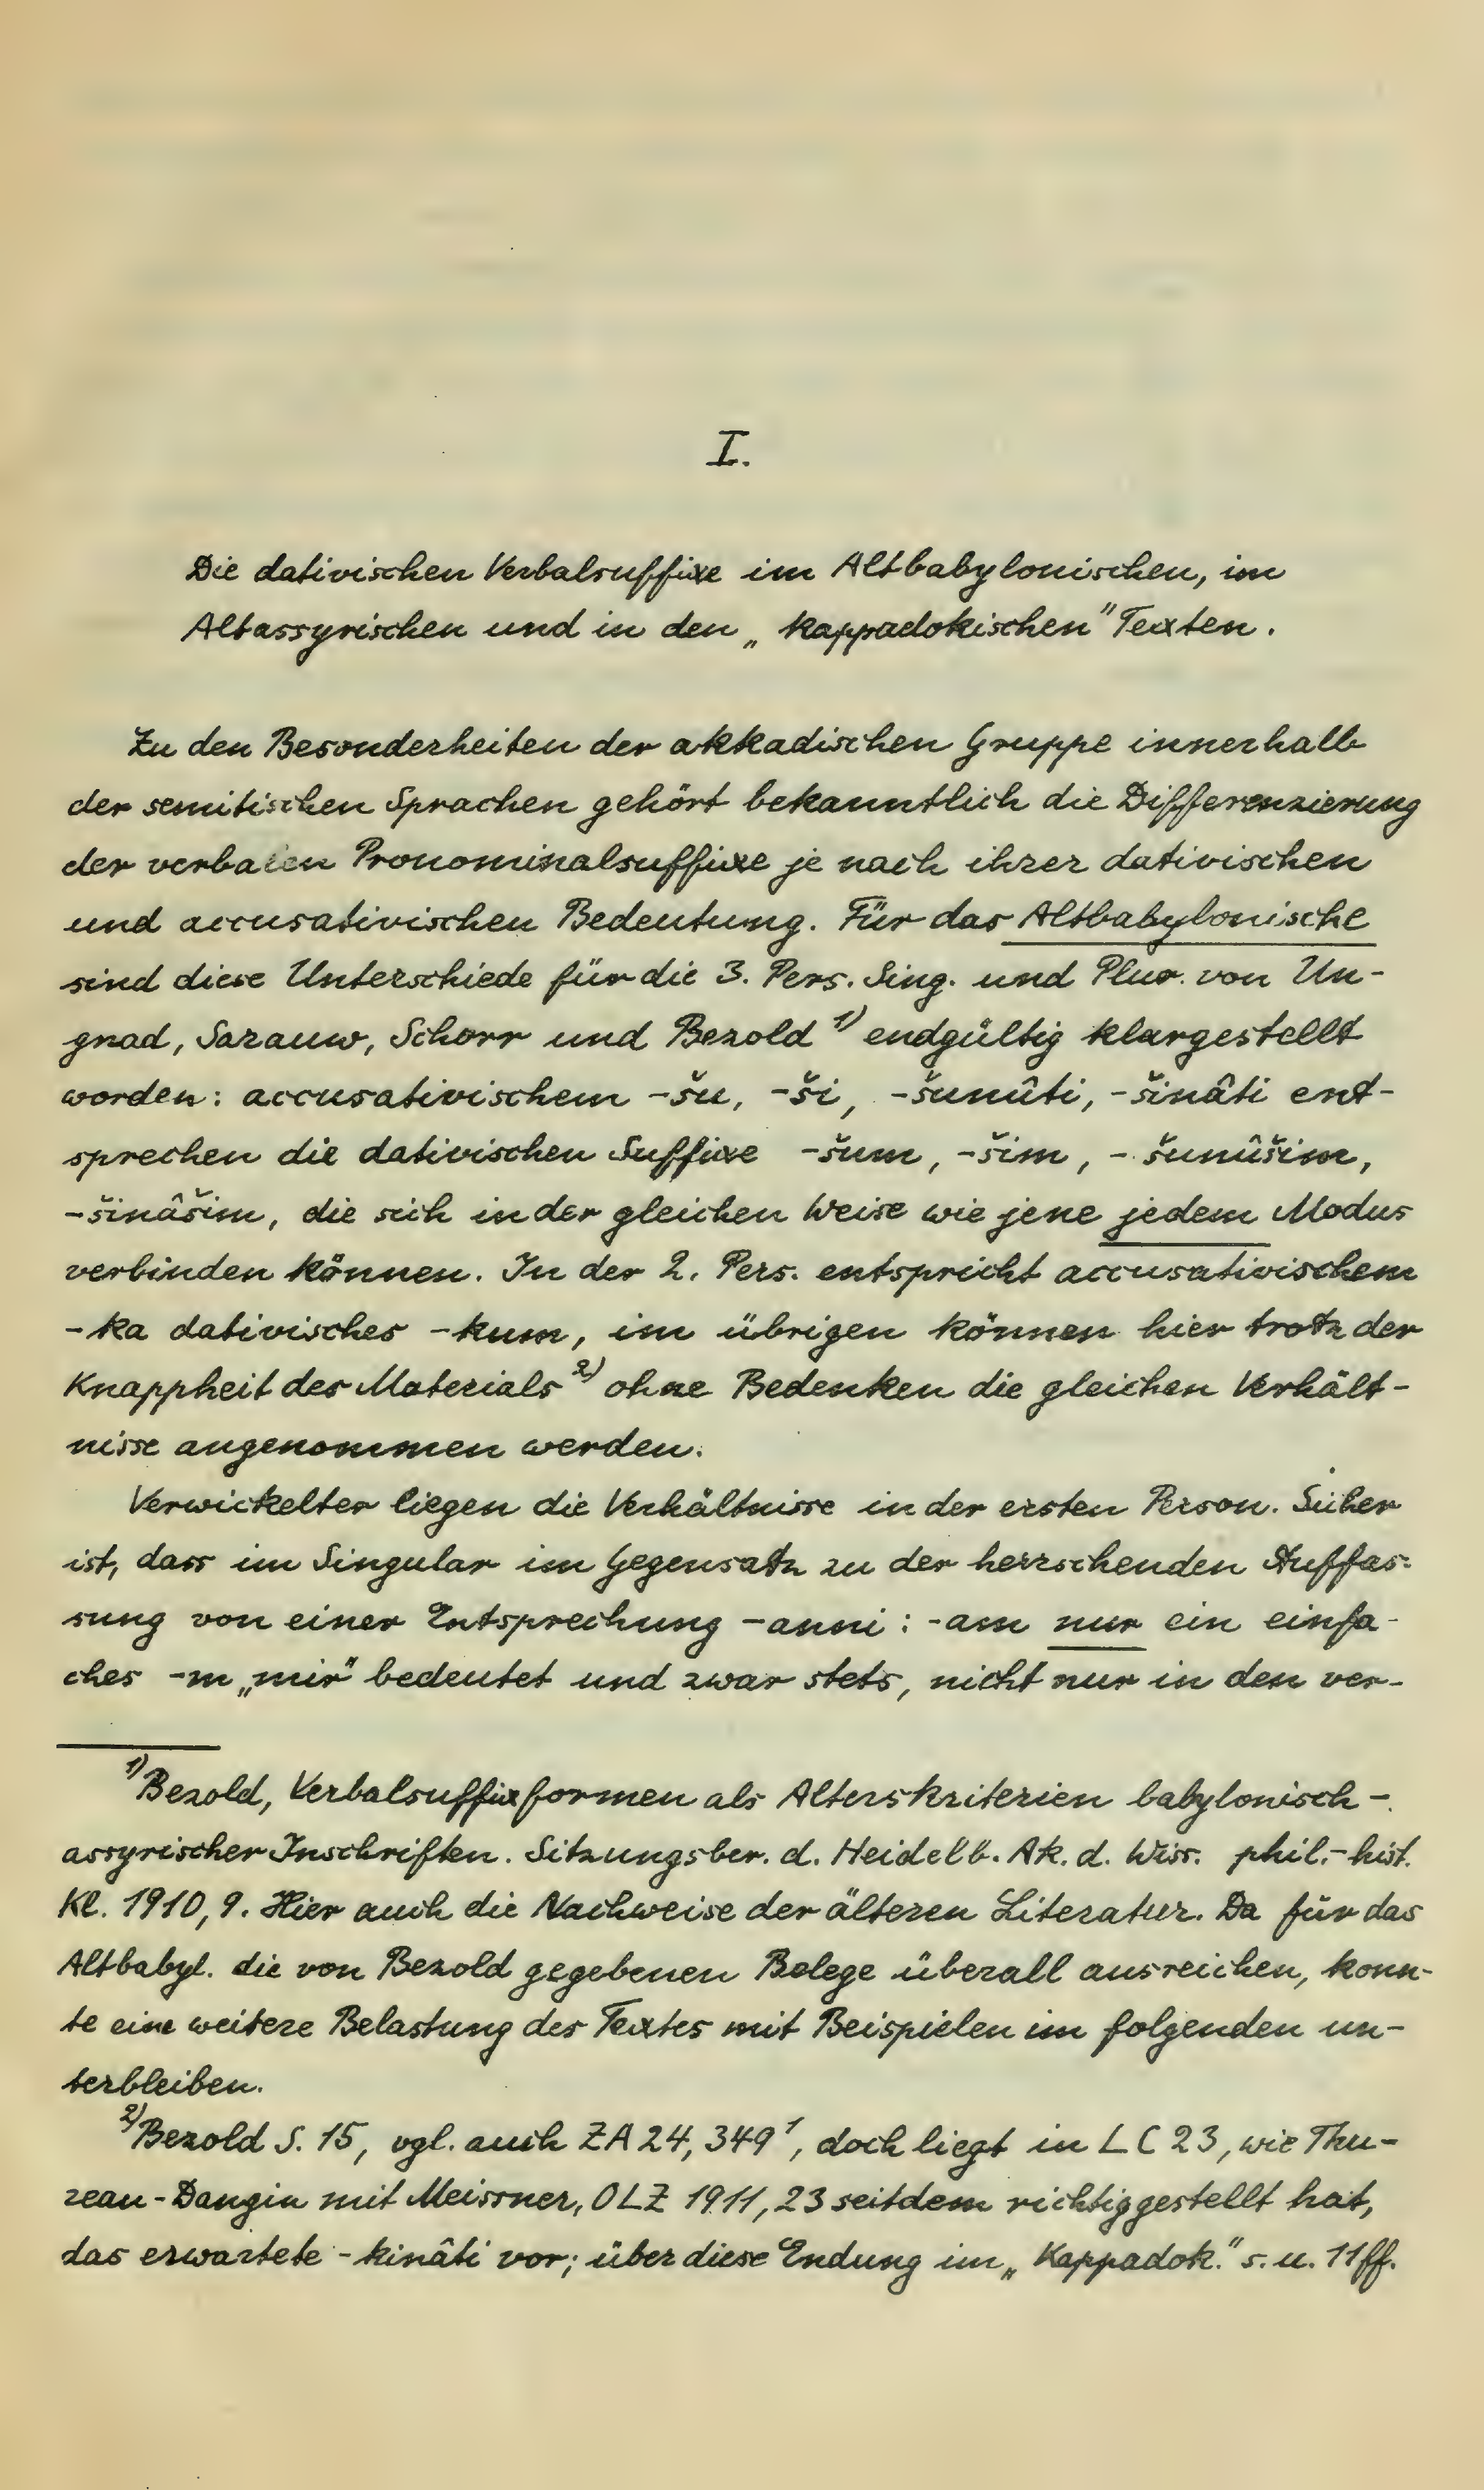 I.
Die dativischen Verbalsuffixe im Altbabylonischen, im
Altassyrischen und in den „kappadokischen" Texten.
Zu den Besonderheiten der akkadischen Gruppe innerhalb
der semitischen Sprachen gehört bekanntlich die Differenzierung
der verbalen Pronominalsuffixe je nach ihrer dativischen
und accusativischen Bedeutung. Für das Altbabylonische
sind diese Unterschiede für die 3. Pers. Sing. und Plur. von Un-
gnad, Sarauw, Schorr und Bezold 1) endgültig klargestellt
worden: accusativischem -šu, -ši, -šunûti, -šinâti ent-
sprechen die dativischen Suffixe -šum, -šim, -šunûšim,
-šinâšim, die sich in der gleichen Weise wie jene jedem Modus
verbinden können. In der 2. Pers. entspricht accusativischem
-ka dativisches -kum, im übrigen können hier trotz der
Knappheit des Materials 2) ohne Bedenken die gleichen Verhält-
nisse angenommen werden.
Verwickelter liegen die Verhältnisse in der ersten Person. Sicher
ist, dass im Singular im Gegensatz zu der herrschenden Auffas-
sung von einer Entsprechung -anni : -am nur ein einfa-
ches -m „mir" bedeutet und zwar stets, nicht nur in den ver-
1) Bezold, Verbalsuffixformen als Alterskriterien babylonisch-
assyrischer Inschriften. Sitzungsber. d. Heidelb. Ak. d. Wiss. phil.-hist.
Kl. 1910, 9. Hier auch die Nachweise der älteren Literatur. Da für das
Altbabyl. die von Bezold gegebenen Belege überall ausreichen, konn-
te eine weitere Belastung des Textes mit Beispielen im folgenden un-
terbleiben.
2) Bezold S. 15, vgl. auch ZA 24, 349¹, doch liegt in LC 23, wie Thu-
reau-Dangin mit Meissner, OLZ 1911, 23 seitdem richtiggestellt hat,
das erwartete -kinâti vor; über diese Endung im „Kappadok." s. u. 11ff.